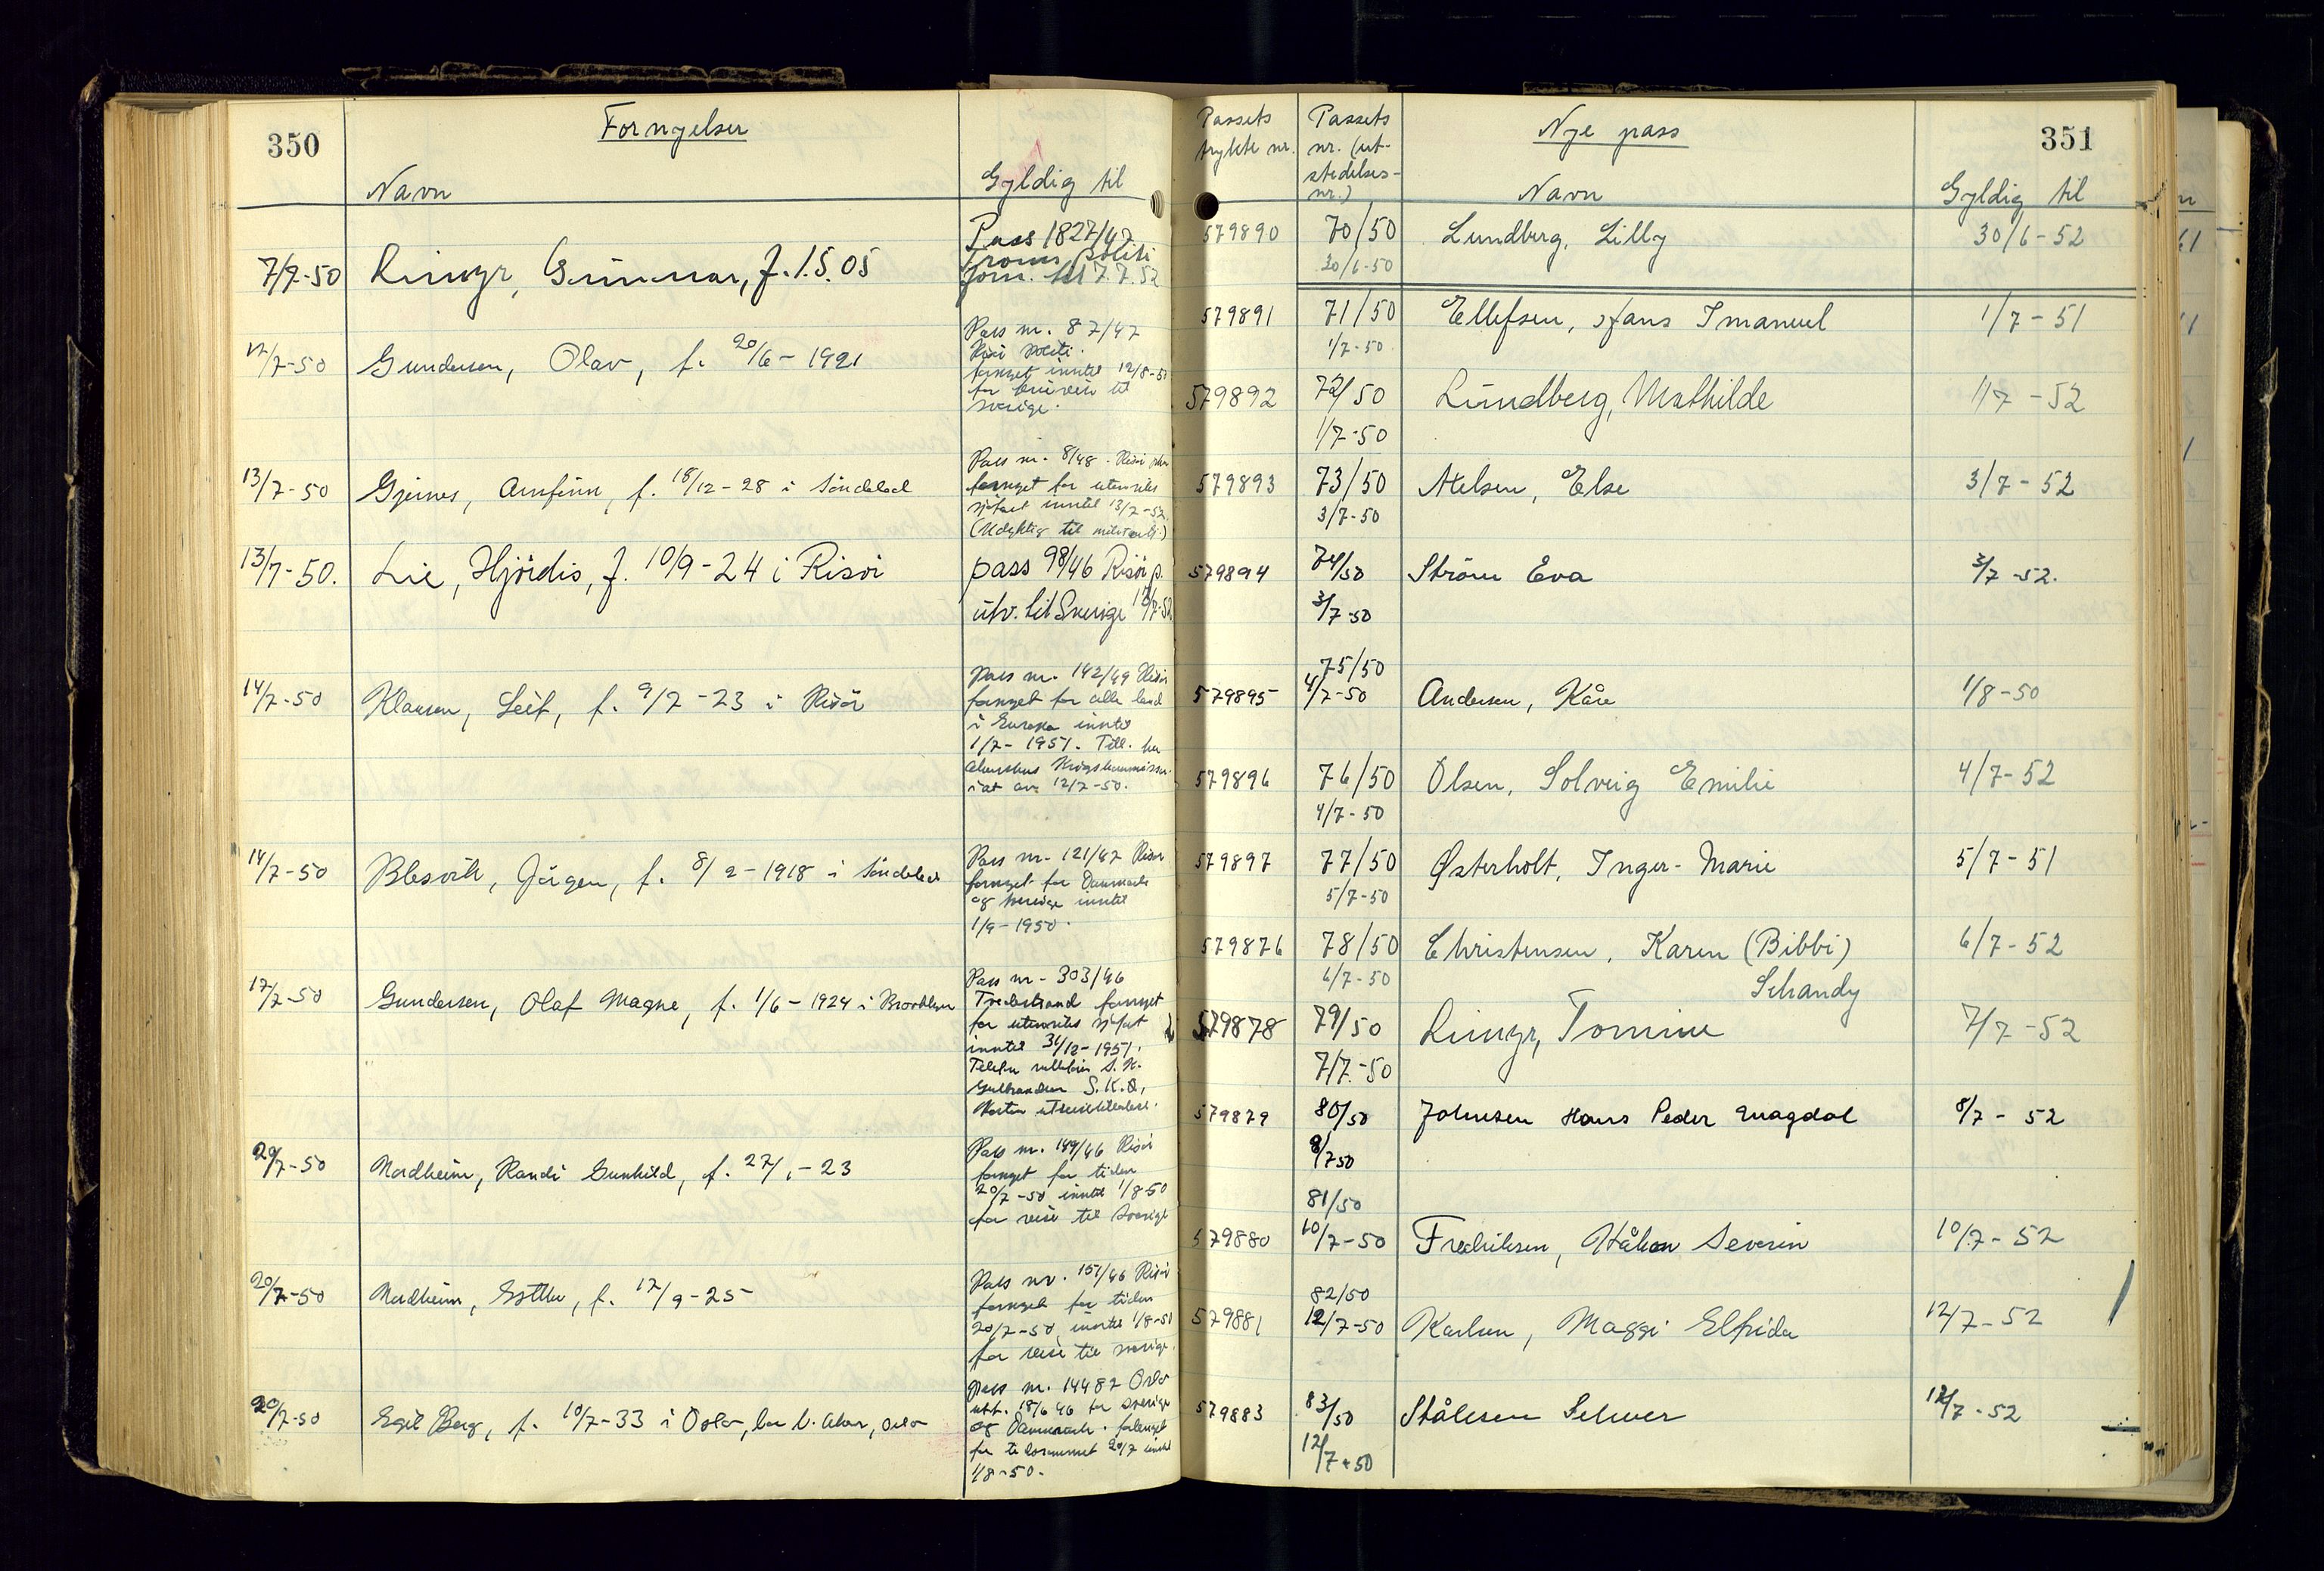 350
Fornyelser
Navn
Gyldig til
7/7-50
Lingr, Gunnar, f. 1.5.05
Pass 1827/47
Troms politi
forn. til 7.7.52
12/7-50
Gundersen, Olav, f. 20/6 - 1921
Pass nr. 87/47
Risør politi.
fornyet inntil 12/8-50
for
til
Sverige.
13/7-50
Gjernes, Arnfinn, f. 18/12-28 i Söndeled
Pass nr. 8/48 - Risør
fornyet for utenriks
sjøfart inntil 13/7-52.
(Udyktig til
13/7-50.
Lie, Hjördis, f. 10/9-24 i Risör
pass 98/46 Risör p.
utv. til Sverige
14/7-50
Klausen, Leif, f. 9/7-23 i Risör
Pass nr. 142/49 Risör
fornyet for alle land
i Europa inntil
1/7-1951. Till. fra
Akershus Krigskommissar-
iat av 12/7-50.
14/7-50
Blesvik, Jörgen, f. 8/2-1918 i Söndeled
Pass nr. 121/47 Risør
fornyet for Danmark
og Sverige inntil
1/9-1950.
17/7-50
Gundersen, Olaf Magne, f. 1/6-1924 i Brooklyn
Pass nr. 303/46
Tvedestrand fornyet
for utenriks sjøfart
inntil 31/12-1951.
S. K.
Gulbrandsen S.K.Ø,
Horten
20/7-50
Nordheim, Randi Gunhild, f. 27/1-23
Pass nr. 149/46 Risör
fornyet for tiden
20/7-50 inntil 1/8-50
for reise til Sverige
20/7-50
Nordheim, Esther, f. 17/9-25
Pass nr. 151/46 Risör
fornyet for tiden
20/7-50 inntil 1/8-50
for reise til Sverige
20/7-50
Egil Berg, f. 10/7-33 i Oslo, Oslo
Pass nr. 14487 Oslo
utst. 18/6 46 for Sverige
og Danmark. forlenget
for tidsrommet 20/7 inntil
1/8-50.
351
Passets
trykte nr.
Passets
nr. (ut-
stedelses-
nr.)
Nye pass
Navn
Gyldig til
579890 70/50 Lundberg, Lilly 30/6-52
30/6-50
579891 71/50 Ellefsen, Hans Imanuel 1/7-51
1/7-50
579892 72/50 Lundberg, Mathilde 1/7-52
1/7-50
579893 73/50 Axelsen, Else 3/7-52
3/7-50
579894 74/50 Ström Eva 3/7-52.
3/7-50
75/50
579895 4/7-50 Andersen, Kåre 1/8-50
579896 76/50 Olsen, Solveig Emilie 4/7-52
4/7-50
579897 77/50 Østerholt, Inger-Marie 5/7-51
5/7-50
579876 78/50 Christensen, Karen (Bibbi) 6/7-52
6/7-50 Schandy
579878 79/50 Lingr, Tomine 7/7-52
7/7-50
579879 80/50 Johnsen Hans Peder Magdal 8/7-52
8/7 50
81/50
579880 10/7-50 Fredriksen, Håkon Severin 10/7-52
82/50
579881 12/7-50 Karlsen, Maggi Elfrida 12/7-52
579883 83/50 Stålesen Selmer 12/7-52
12/7-50